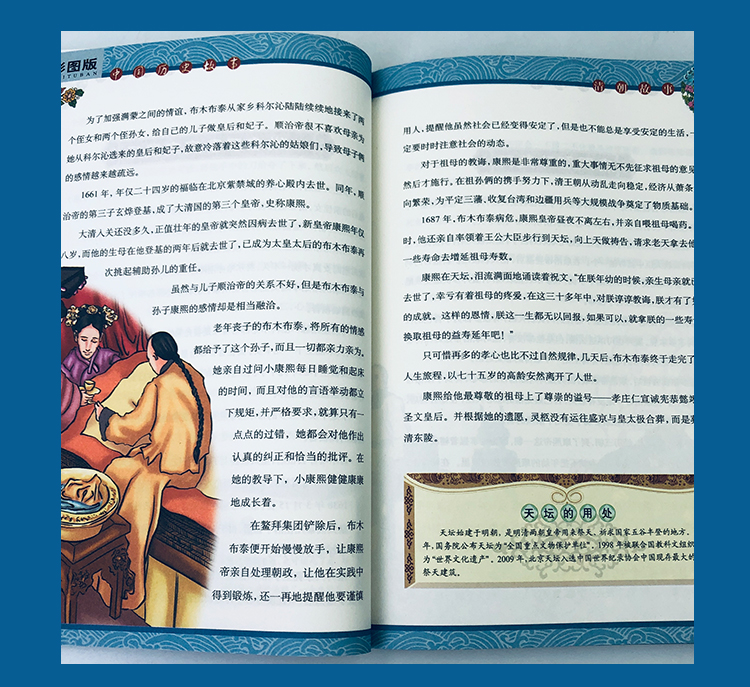 彩图版
CAITUBAN
中国历史故事
为了加强满蒙之间的情谊，布木布泰从家乡科尔沁陆陆续续地接来了两
个侄女和两个侄孙女，给自己的儿子做皇后和妃子。顺治帝很不喜欢母亲为
她从科尔沁选来的皇后和妃子，故意冷落着这些科尔沁的姑娘们，导致母子俩
的感情越来越疏远。
1661年，年仅二十四岁的福临在北京紫禁城的养心殿内去世。同年，顺
治帝的第三子玄烨登基，成了大清国的第三个皇帝，史称康熙。
大清入关还没多久，正值壮年的皇帝就突然因病去世了，新皇帝康熙仅
八岁，而他的生母在他登基的两年后就去世了，已成为太皇太后的布木布泰再
次挑起辅助孙儿的重任。
虽然与儿子顺治帝的关系不好，但是布木布泰与
孙子康熙的感情却是相当融洽。
老年丧子的布木布泰，将所有的情感
都给予了这个孙子，而且一切都亲力亲为。
她亲自过问小康熙每日睡觉和起床
的时间，而且对他的言语举动都立
下规矩，并严格要求，就算只有一
点点的过错，她都会对他作出
认真的纠正和恰当的批评。在
她的教导下，小康熙健健康康
地成长着。
在鳌拜集团铲除后，布木
布泰便开始慢慢放手，让康熙
帝亲自处理朝政，让他在实践中
得到锻炼，还一再地提醒他要谨慎
清朝故事
用人，提醒他虽然社会已经变得安定了，但是也不能总是享受安定的生活，一
定要时时注意社会的动态。
对于祖母的教诲，康熙是非常尊重的，重大事情无不先征求祖母的意见
然后才施行。在祖孙俩的携手努力下，清王朝从动乱走向稳定，经济从萧条
向繁荣，为平定三藩、收复台湾和边疆用兵等大规模战争奠定了物质基础。
1687年，布木布泰病危，康熙皇帝昼夜不离左右，并亲自喂祖母喝药。
时，他还亲自率领着王公大臣步行到天坛，向上天做祷告，请求老天拿去他
一些寿命去增延祖母寿数。
康熙在天坛，泪流满面地诵读着祝文，“在朕年幼的时候，亲生母亲就已
去世了，幸亏有着祖母的疼爱，在这三十多年中，对朕谆谆教诲，朕才有了
的成就。这样的恩情，朕这一生都无以回报，如果可以，就拿朕的一些寿
换取祖母的益寿延年吧！”
只可惜再多的孝心也比不过自然规律，几天后，布木布泰终于走完了
人生旅程，以七十五岁的高龄安然离开了人世。
康熙给他最尊敬的祖母上了尊崇的谥号——孝庄仁宣诚宪恭懿
圣文皇后。并根据她的遗愿，灵柩没有运往盛京与皇太极合葬，而是
清东陵。
天坛的用处
天坛始建于明朝，是明清两朝皇帝用来祭天、祈求国家五谷丰登的地方。
年，国务院公布天坛为“全国重点文物保护单位”。1998年被联合国教科文组织
为“世界文化遗产”。2009年，北京天坛入选中国世界纪录协会中国现存最大的
祭天建筑。